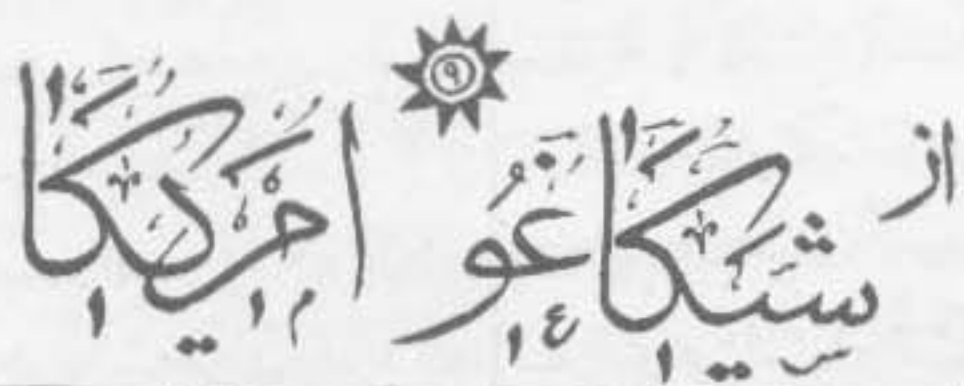 ۹
از شیکاغو امریکا